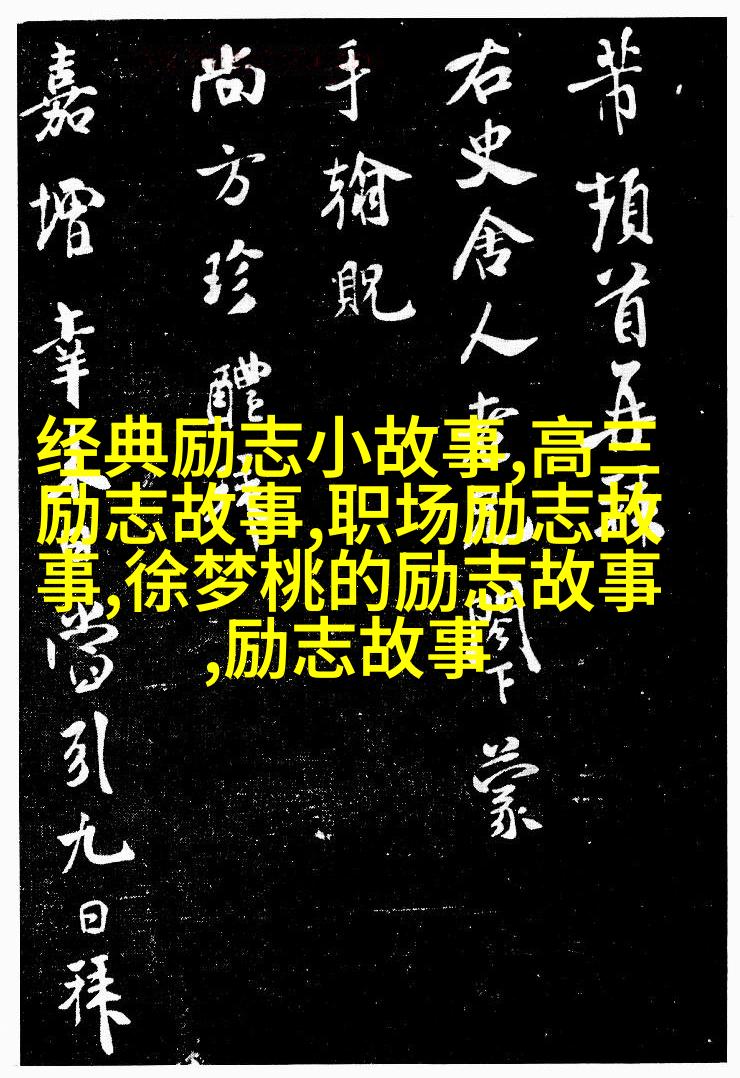 芾頓首再
右史舍人閣下蒙
手翰貺
尚方珍醴
嘉增幸當引九日拜
经典励志小故事,高三
励志故事,职场励志故
事,徐梦桃的励志故事
,励志故事